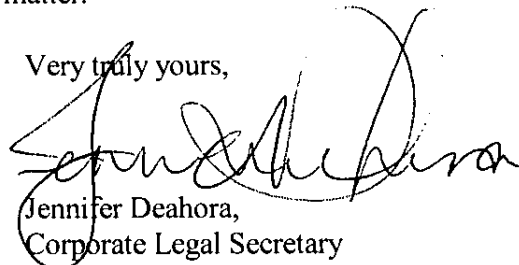 matter.
Very truly yours,
Jennifer Deahora,
Corporate Legal Secretary